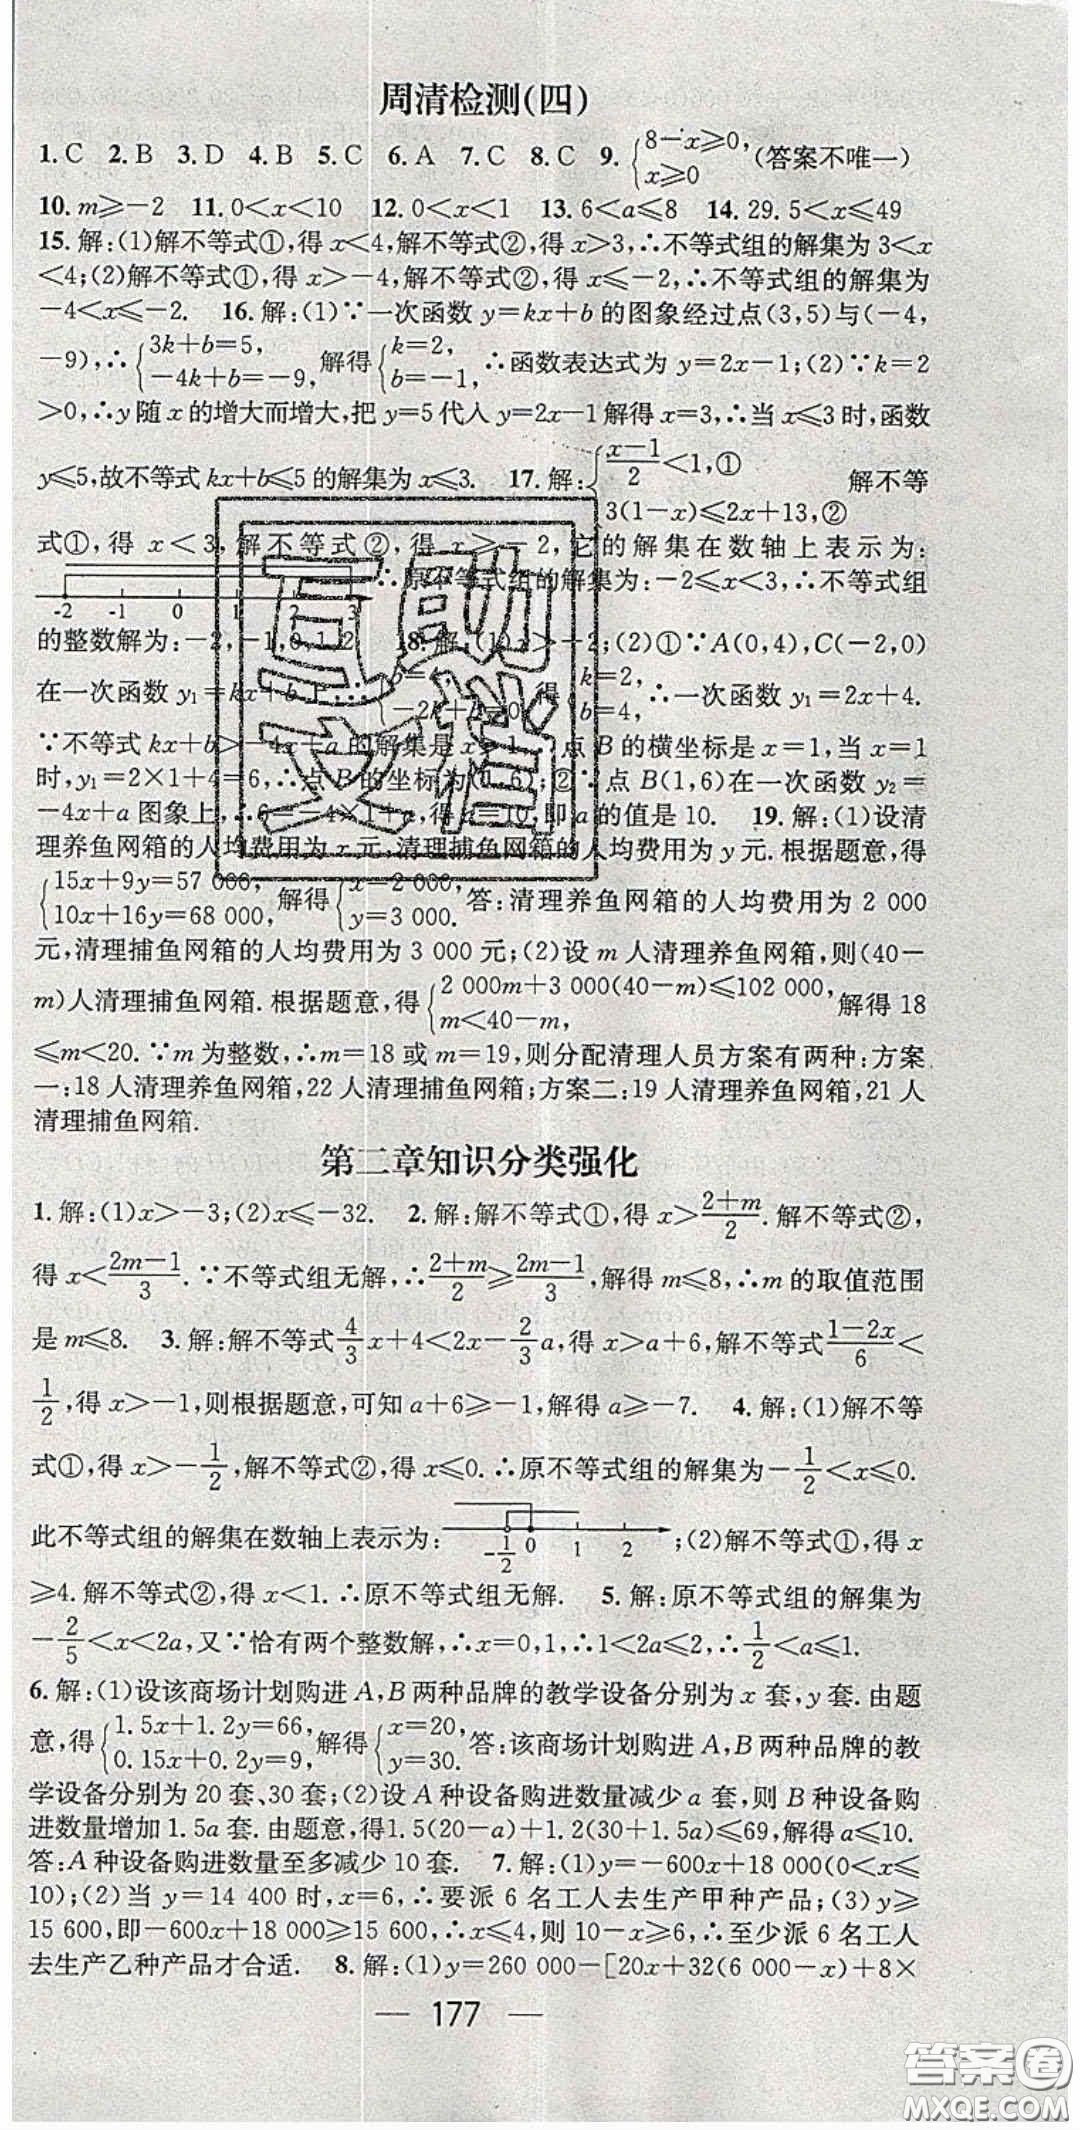 周清检测(四)
1. C  2. B  3. D  4. B  5. C  6. A  7. C  8. C  9. {8−x⩾0, x⩾0 (答案不唯一)
10. m⩾−2  11. 0<x<10  12. 0<x<1  13. 6<a⩽8  14. 29.5<x⩽49
15. 解:(1)解不等式①,得 x<4,解不等式②,得 x>3,∴不等式组的解集为 3<x
<4;(2)解不等式①,得 x>−4,解不等式②,得 x⩽−2,∴不等式组的解集为
−4<x⩽−2.  16. 解:(1)∵一次函数 y=kx+b 的图象经过点(3,5)与(−4,
−9),∴{3k+b=5, −4k+b=−9, 解得{k=2, b=−1, ∴函数表达式为 y=2x−1;(2)∵k=2
>0,∴y 随 x 的增大而增大,把 y=5代人 y=2x−1 解得 x=3,∴当 x⩽3 时,函数
y⩽5,故不等式 kx+b⩽5 的解集为 x⩽3.  17. 解:{(x−1)/2<1,① 3(1−x)⩽2x+13,② 解不等
式①,得 x<3,解不等式②,得 x⩾−2,它的解集在数轴上表示为:
-2 -1 0 1 2 3 ∴原不等式组的解集为:−2⩽x<3,∴不等式组
的整数解为:−2,−1,0,1,2.  18. 解:(1)x>−2;(2)①∵A(0,4),C(−2,0)
在一次函数 y₁=kx+b 上,∴{b=4, −2k+b=0, 得{k=2, b=4, ∴一次函数 y₁=2x+4.
∵不等式 kx+b>−4x+a 的解集是 x>1,∴点 B 的横坐标是 x=1,当 x=1
时,y₁=2×1+4=6,∴点 B 的坐标为(1,6);②∵点 B(1,6)在一次函数 y₂=
−4x+a 图象上,∴6=−4×1+a,得 a=10,即 a 的值是 10.  19. 解:(1)设清
理养鱼网箱的人均费用为 x 元,清理捕鱼网箱的人均费用为 y 元. 根据题意,得
{15x+9y=57 000, 10x+16y=68 000, 解得{x=2 000, y=3 000. 答:清理养鱼网箱的人均费用为 2 000
元,清理捕鱼网箱的人均费用为 3 000 元;(2)设 m 人清理养鱼网箱,则(40−
m)人清理捕鱼网箱. 根据题意,得{2 000m+3 000(40−m)⩽102 000, m<40−m, 解得 18
⩽m<20. ∵m 为整数,∴m=18 或 m=19,则分配清理人员方案有两种:方案
一:18 人清理养鱼网箱,22 人清理捕鱼网箱;方案二:19 人清理养鱼网箱,21 人
清理捕鱼网箱.
第二章知识分类强化
1. 解:(1)x>−3;(2)x⩽−32.  2. 解:解不等式①,得 x>(2+m)/2. 解不等式②,
得 x<(2m−1)/3. ∵不等式组无解,∴(2+m)/2⩾(2m−1)/3,解得 m⩽8,∴m 的取值范围
是 m⩽8.  3. 解:解不等式 4/3 x+4<2x−2/3 a,得 x>a+6,解不等式 (1−2x)/6<
1/2,得 x>−1,则根据题意,可知 a+6⩾−1,解得 a⩾−7.  4. 解:(1)解不等
式①,得 x>−1/2,解不等式②,得 x⩽0. ∴原不等式组的解集为−1/2<x⩽0.
此不等式组的解集在数轴上表示为: -1/2 0 1 2 ;(2)解不等式①,得 x
⩾4. 解不等式②,得 x<1. ∴原不等式组无解.  5. 解:原不等式组的解集为
−2/5<x<2a,又∵恰有两个整数解,∴x=0,1,∴1<2a⩽2,∴1/2<a⩽1.
6. 解:(1)设该商场计划购进 A,B 两种品牌的教学设备分别为 x 套,y 套. 由题
意,得{1.5x+1.2y=66, 0.15x+0.2y=9, 解得{x=20, y=30. 答:该商场计划购进 A,B 两种品牌的教
学设备分别为 20 套、30 套;(2)设 A 种设备购进数量减少 a 套,则 B 种设备购
进数量增加 1.5a 套. 由题意,得1.5(20−a)+1.2(30+1.5a)⩽69,解得 a⩽10.
答:A 种设备购进数量至多减少 10 套.  7. 解:(1)y=−600x+18 000(0<x⩽
10);(2)当 y=14 400 时,x=6,∴要派 6 名工人去生产甲种产品;(3)y⩾
15 600,即−600x+18 000⩾15 600,∴x⩽4,则 10−x⩾6,∴至少派 6 名工人
去生产乙种产品才合适.  8. 解:(1)y=260 000−[20x+32(6 000−x)+8×
— 177 —
答案圈
MXQE.COM